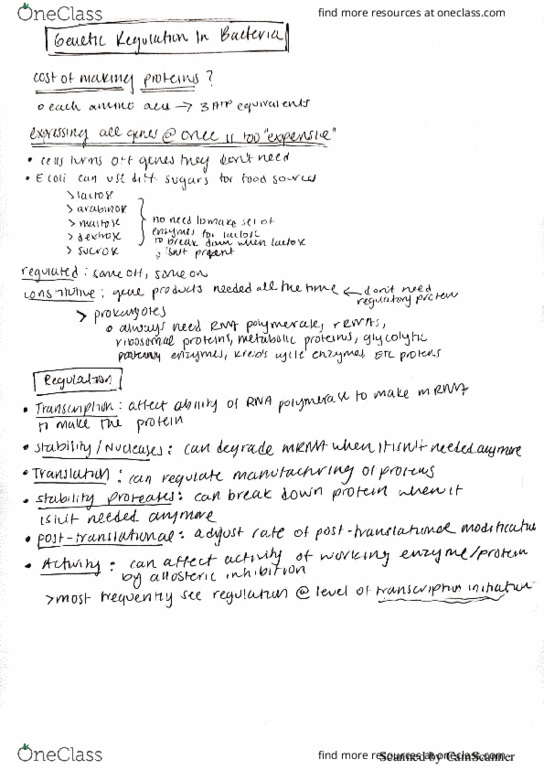 OneClass find more resources at oneclass.com
Genetic Regulation In Bacteria
cost of making proteins?
o each amino acid → 3 ATP equivalents
expressing all genes @ once is too "expensive"
• cells turns off genes they don't need
• E coli can use diff sugars for food sources
> lactose
> arabinose
> maltose
> dextrose
> sucrose
no need to make set of
enzymes for lactose
to break down when lactose
isn't present
regulated: some off, some on
constitutive: gene products needed all the time ← don't need
regulatory protein
> prokaryotes
o always need RNA polymerase, rRNAs,
ribosomal proteins, metabolic proteins, glycolytic
enzymes, krebs cycle enzymes, ETC proteins
Regulation
• Transcription: affect ability of RNA polymerase to make mRNA
to make the protein
• stability/Nucleases: can degrade mRNA when it isn't needed anymore
• Translation: can regulate manufacturing of proteins
• stability proteases: can break down protein when it
isn't needed anymore
• post-translational: adjust rate of post-translational modification
• Activity: can affect activity of working enzyme/protein
by allosteric inhibition
> most frequently see regulation @ level of transcription initiation
OneClass find more resources at oneclass.com
Scanned by CamScanner